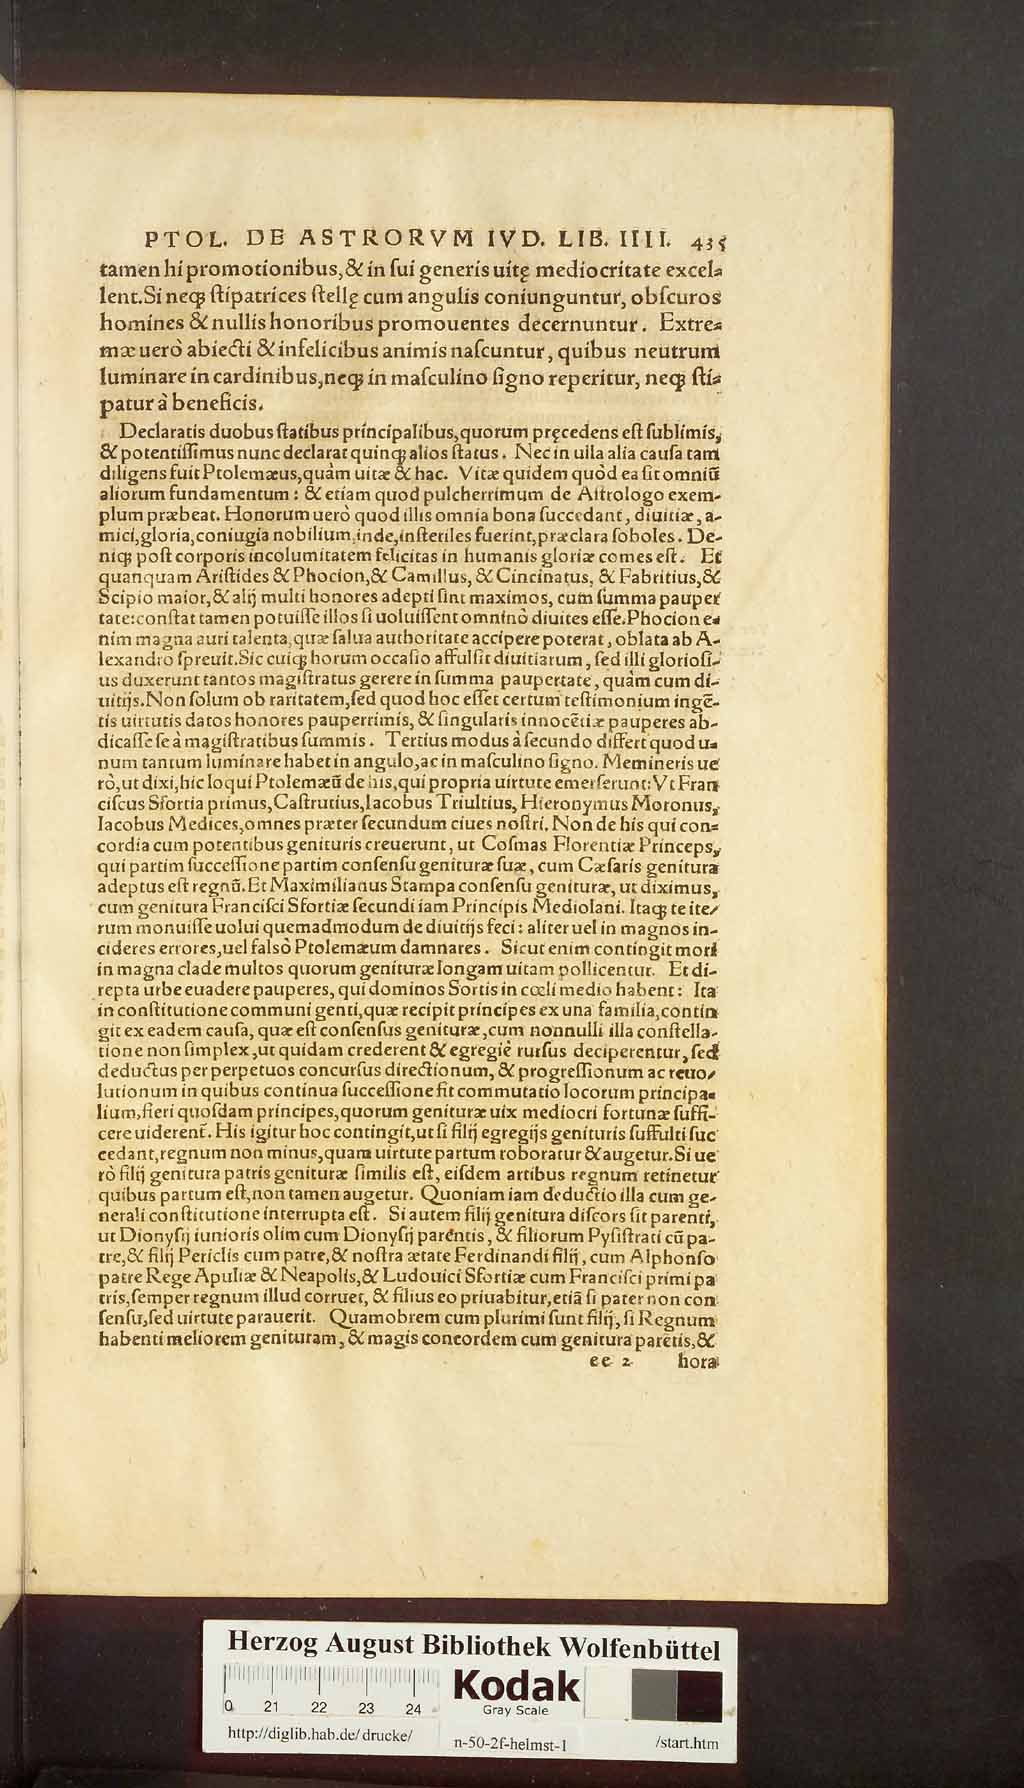 PTOL. DE ASTRORVM IVD. LIB. IIII. 435
tamen hi promotionibus, & in ſui generis uitę mediocritate excel⸗
lent. Si neqꝫ ſtipatrices ſtellę cum angulis coniunguntur, obſcuros
homines & nullis honoribus promouentes decernuntur. Extre⸗
mæ uerò abiecti & infelicibus animis naſcuntur, quibus neutrum
luminare in cardinibus, neqꝫ in maſculino ſigno reperitur, neqꝫ ſti⸗
patur à beneficis.
Declaratis duobus ſtatibus principalibus, quorum pręcedens eſt ſublimis,
& potentiſſimus nunc declarat quinqꝫ alios ſtatus. Nec in ulla alia cauſa tam
diligens fuit Ptolemæus, quàm uitæ & hac. Vitæ quidem quòd ea ſit omniũ
aliorum fundamentum: & etiam quod pulcherrimum de Aſtrologo exem-
plum præbeat. Honorum uerò quod illis omnia bona ſuccedant, diuitiæ, a-
mici, gloria, coniugia nobilium, inde, inſteriles fuerint, præclara ſoboles. De-
niqꝫ poſt corporis incolumitatem felicitas in humanis gloriæ comes eſt. Et
quanquam Ariſtides & Phocion, & Camillus, & Cincinatus, & Fabritius, &
Scipio maior, & alij multi honores adepti ſint maximos, cum ſumma pauper
tate: conſtat tamen potuiſſe illos ſi uoluiſſent omninò diuites eſſe. Phocion e⸗
nim magna auri talenta, quæ ſalua authoritate accipere poterat, oblata ab A-
lexandro ſpreuit. Sic cuiqꝫ horum occaſio affulſit diuitiarum, ſed illi glorioſi-
us duxerunt tantos magiſtratus gerere in ſumma paupertate, quàm cum di-
uitijs. Non ſolum ob raritatem, ſed quod hoc eſſet certum teſtimonium ingẽ-
tis uirtutis datos honores pauperrimis, & ſingularis innocẽtiæ pauperes ab-
dicaſſe ſe à magiſtratibus ſummis. Tertius modus à ſecundo differt quod u⸗
num tantum luminare habet in angulo, ac in maſculino ſigno. Memineris ue
rò, ut dixi, hic loqui Ptolemæũ de his, qui propria uirtute emerſerunt: Vt Fran
ciſcus Sfortia primus, Caſtrutius, Iacobus Triultius, Hieronymus Moronus,
Iacobus Medices, omnes præter ſecundum ciues noſtri. Non de his qui con⸗
cordia cum potentibus genituris creuerunt, ut Coſmas Florentiæ Princeps,
qui partim ſucceſſione partim conſenſu genituræ ſuæ, cum Cæſaris genitura
adeptus eſt regnũ. Et Maximilianus Stampa conſenſu genituræ, ut diximus,
cum genitura Franciſci Sfortiæ ſecundi iam Principis Mediolani. Itaqꝫ te ite⸗
rum monuiſſe uolui quemadmodum de diuitijs feci: aliter uel in magnos in-
cideres errores, uel falsò Ptolemæum damnares. Sicut enim contingit mori
in magna clade multos quorum genituræ longam uitam pollicentur. Et di-
repta urbe euadere pauperes, qui dominos Sortis in cœli medio habent: Ita
in conſtitutione communi genti, quæ recipit principes ex una familia, contin
git ex eadem cauſa, quæ eſt conſenſus genituræ, cum nonnulli illa conſtella-
tione non ſimplex, ut quidam crederent & egregiè rurſus deciperentur, ſed
deductus per perpetuos concurſus directionum, & progreſſionum ac reuo⸗
lutionum in quibus continua ſucceſſione fit commutatio locorum principa⸗
lium, fieri quoſdam principes, quorum genituræ uix mediocri fortunæ ſuffi-
cere uiderent̃. His igitur hoc contingit, ut ſi filij egregijs genituris ſuffulti ſuc
cedant, regnum non minus, quam uirtute partum roboratur & augetur. Si ue
rò filij genitura patris genituræ ſimilis eſt, eiſdem artibus regnum retinetur
quibus partum eſt, non tamen augetur. Quoniam iam deductio illa cum ge-
nerali conſtitutione interrupta eſt. Si autem filij genitura diſcors ſit parenti,
ut Dionyſij iunioris olim cum Dionyſij parentis, & filiorum Pyſiſtrati cũ pa-
tre, & filij Periclis cum patre, & noſtra ætate Ferdinandi filij, cum Alphonſo
patre Rege Apuliæ & Neapolis, & Ludouici Sfortiæ cum Franciſci primi pa
tris, ſemper regnum illud corruet, & filius eo priuabitur, etiã ſi pater non con
ſenſu, ſed uirtute parauerit. Quamobrem cum plurimi ſunt filij, ſi Regnum
habenti meliorem genituram, & magis concordem cum genitura parẽtis, &
ee 2 hora
Herzog August Bibliothek Wolfenbüttel
0 21 22 23 24
Kodak
Gray Scale
http://diglib.hab.de/drucke/ n-50-2f-helmst-1 /start.htm